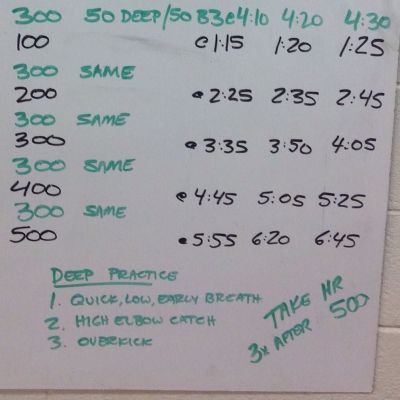 300 50 DEEP/50 B3 @ 4:10 4:20 4:30
100 @ 1:15 1:20 1:25
300 SAME
200 @ 2:25 2:35 2:45
300 SAME
300 @ 3:35 3:50 4:05
300 SAME
400 @ 4:45 5:05 5:25
300 SAME
500 @ 5:55 6:20 6:45
DEEP PRACTICE
1. QUICK, LOW, EARLY BREATH
2. HIGH ELBOW CATCH
3. OVERKICK
TAKE HR
3x AFTER 500